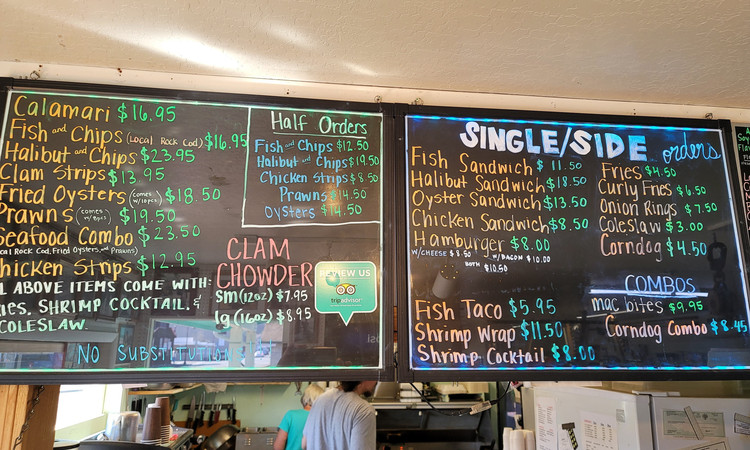 Calamari $16.95
Fish and Chips (Local Rock Cod) $16.95
Halibut and Chips $23.95
Clam Strips $13.95
Fried Oysters (comes w/10pcs) $18.50
Prawns (comes w/8pcs) $19.50
Seafood Combo $23.50
Rock Cod, Fried Oysters, and Prawns)
Chicken Strips $12.95
ABOVE ITEMS COME WITH:
SHRIMP COCKTAIL, &
COLESLAW.
NO SUBSTITUTIONS!!
Half Orders
Fish and Chips $12.50
Halibut and Chips $19.50
Chicken Strips $8.50
Prawns $14.50
Oysters $14.50
CLAM
CHOWDER
sm (12oz) $7.95
lg (16oz) $8.95
REVIEW US
tripadvisor
SINGLE/SIDE orders
Fish Sandwich $11.50
Halibut Sandwich $18.50
Oyster Sandwich $13.50
Chicken Sandwich $8.50
Hamburger $8.00
W/CHEESE $8.50 W/BACON $10.00
BOTH $10.50
Fish Taco $5.95
Shrimp Wrap $11.50
Shrimp Cocktail $8.00
Fries $4.50
Curly Fries $6.50
Onion Rings $7.50
Coleslaw $3.00
Corndog $4.50
COMBOS
mac bites $9.95
Corndog Combo $8.45